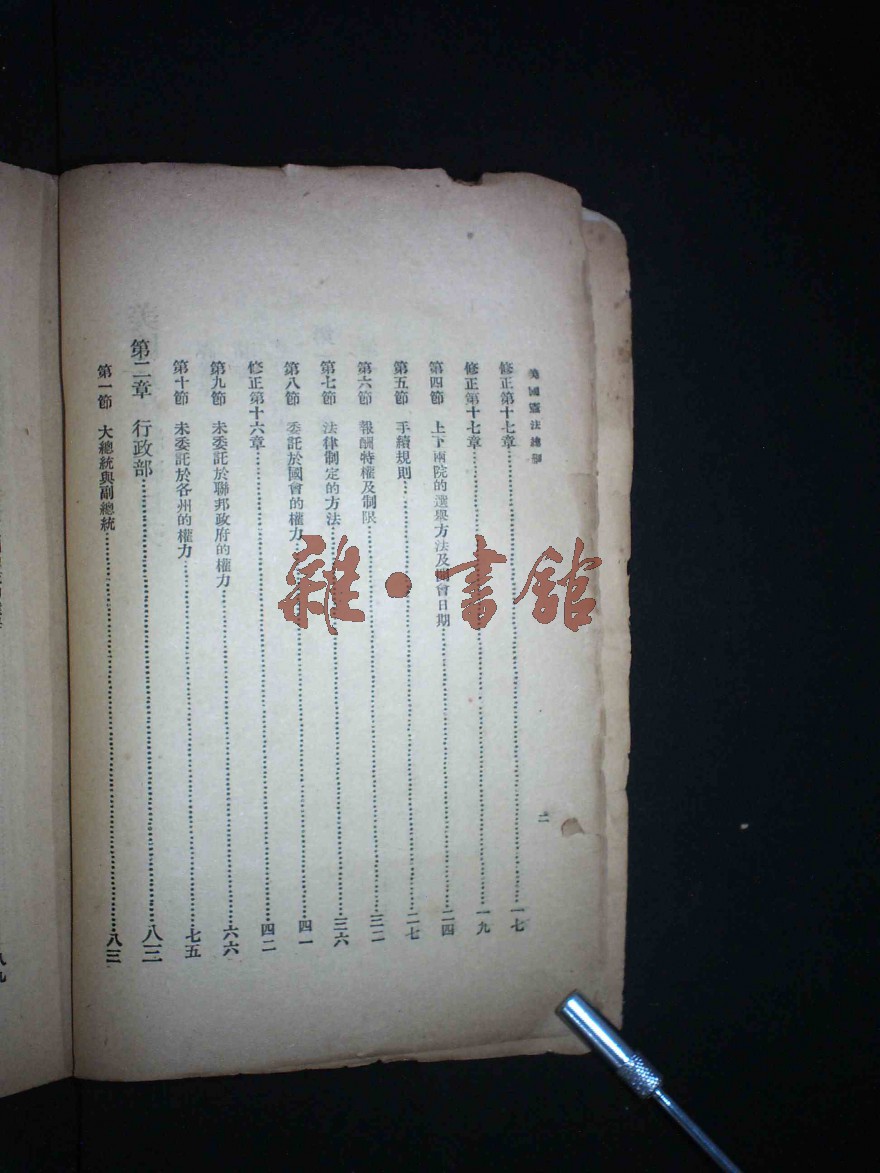 美國憲法總論
二
修正第十七章……一七
修正第十七章……一九
第四節 上下兩院的選舉方法及開會日期……二四
第五節 手續規則……二七
第六節 報酬特權及制限……三二
第七節 法律制定的方法……三六
第八節 委託於國會的權力……四一
修正第十六章……四二
第九節 未委託於聯邦政府的權力……六六
第十節 未委託於各州的權力……七五
第二章 行政部……八三
第一節 大總統與副總統……八三
八九
雜·書館